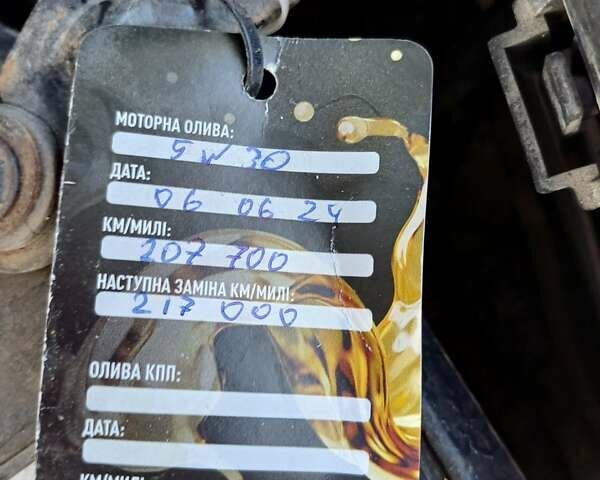 МОТОРНА ОЛИВА:
5 W 30
ДАТА:
06 06 24
КМ/МИЛІ:
207 700
НАСТУПНА ЗАМІНА КМ/МИЛІ:
217 000
ОЛИВА КПП:
ДАТА:
КМ/МИЛІ: